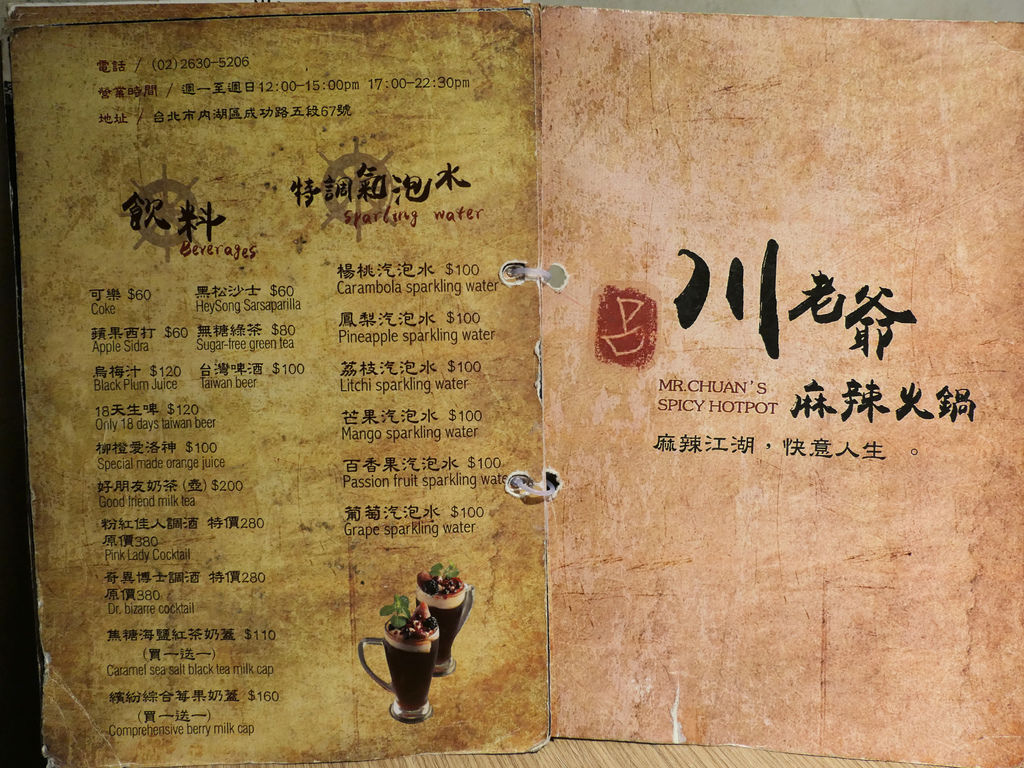 電話 / (02)2630-5206
營業時間 / 週一至週日12:00-15:00pm 17:00-22:30pm
地址 / 台北市內湖區成功路五段67號
飲料
Beverages
可樂 $60
Coke
黑松沙士 $60
HeySong Sarsaparilla
蘋果西打 $60
Apple Sidra
無糖綠茶 $80
Sugar-free green tea
烏梅汁 $120
Black Plum Juice
台灣啤酒 $100
Taiwan beer
18天生啤 $120
Only 18 days taiwan beer
柳橙愛洛神 $100
Special made orange juice
好朋友奶茶(壺)$200
Good friend milk tea
粉紅佳人調酒 特價280
原價380
Pink Lady Cocktail
奇異博士調酒 特價280
原價380
Dr. bizarre cocktail
焦糖海鹽紅茶奶蓋 $110
(買一送一)
Caramel sea salt black tea milk cap
繽紛綜合莓果奶蓋 $160
(買一送一)
Comprehensive berry milk cap
特調氣泡水
Sparling water
楊桃汽泡水 $100
Carambola sparkling water
鳳梨汽泡水 $100
Pineapple sparkling water
荔枝汽泡水 $100
Litchi sparkling water
芒果汽泡水 $100
Mango sparkling water
百香果汽泡水 $100
Passion fruit sparkling wate
葡萄汽泡水 $100
Grape sparkling water
川老爺
MR.CHUAN'S
SPICY HOTPOT
麻辣火鍋
麻辣江湖，快意人生 。